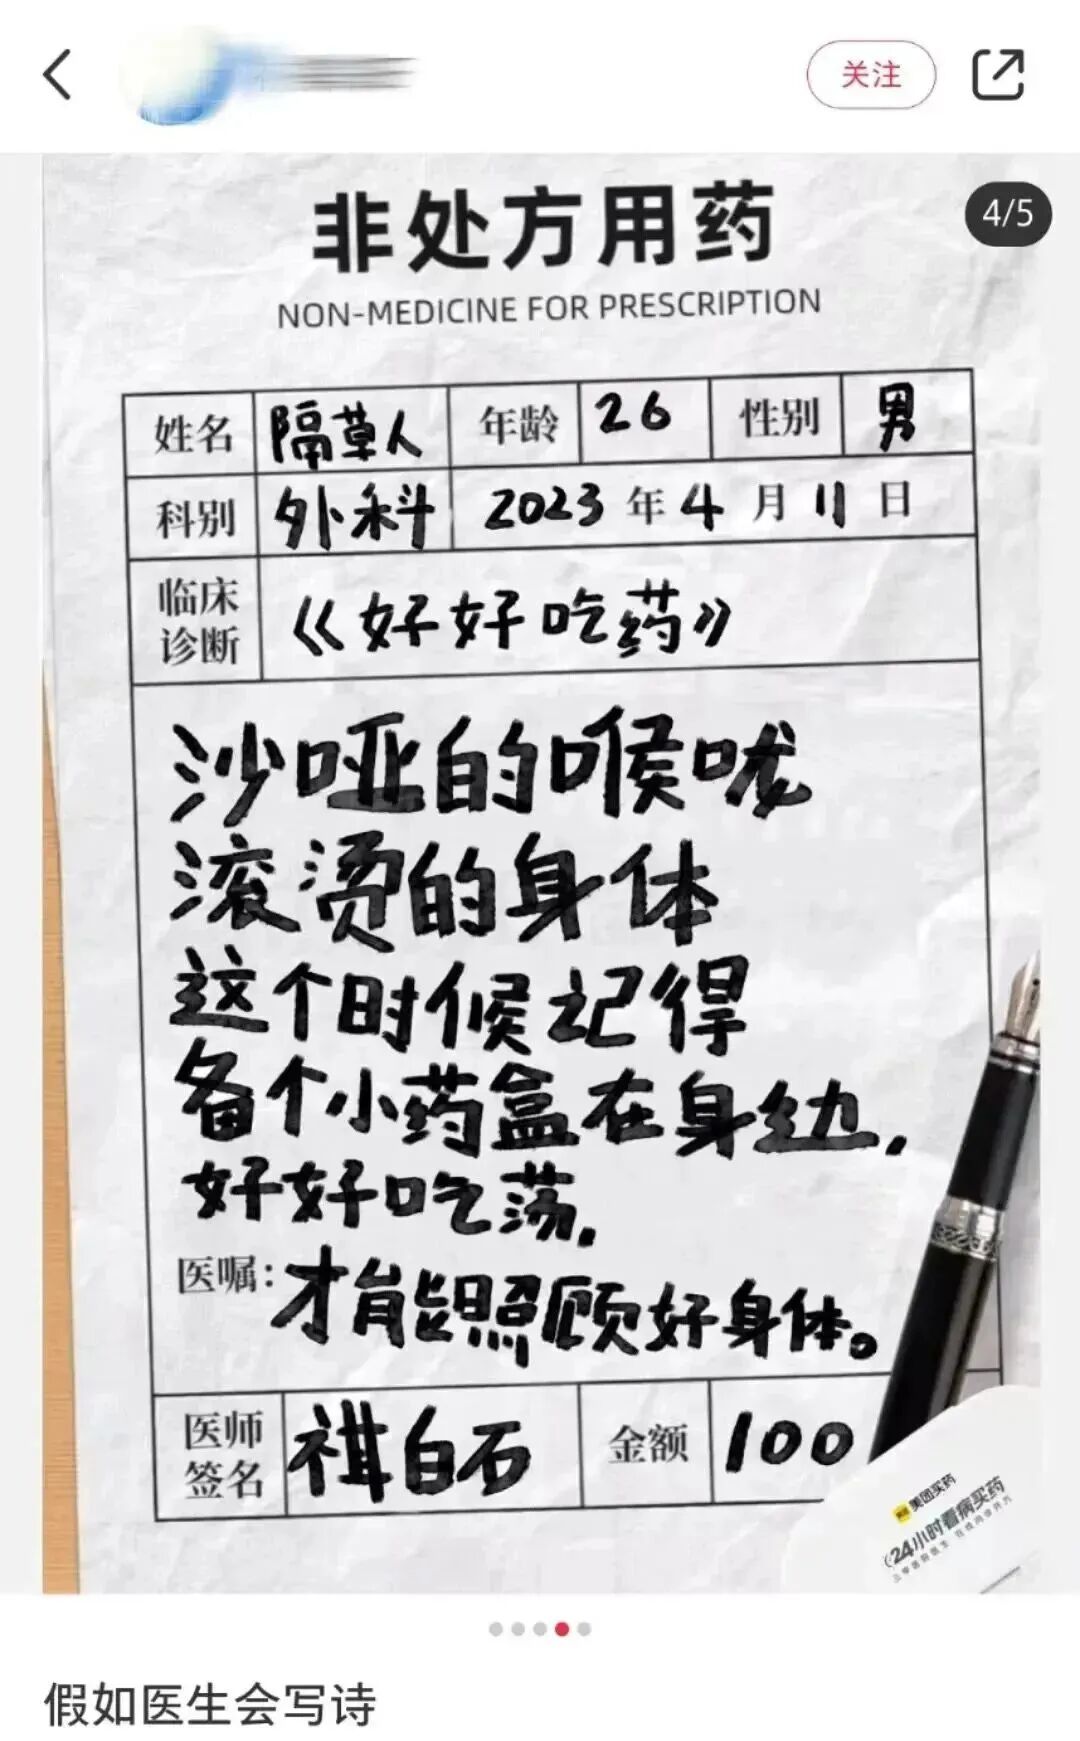 关注
4/5
非处方用药
NON-MEDICINE FOR PRESCRIPTION
姓名 隔草人 年龄 26 性别 男
科别 外科 2023年4月11日
临床诊断 《好好吃药》
沙哑的喉咙
滚烫的身体
这个时候记得
备个小药盒在身边,
好好吃荡.
医嘱:才能照顾好身体。
医师签名 祺白石 金额 100
美团买药
24小时看病买药
假如医生会写诗